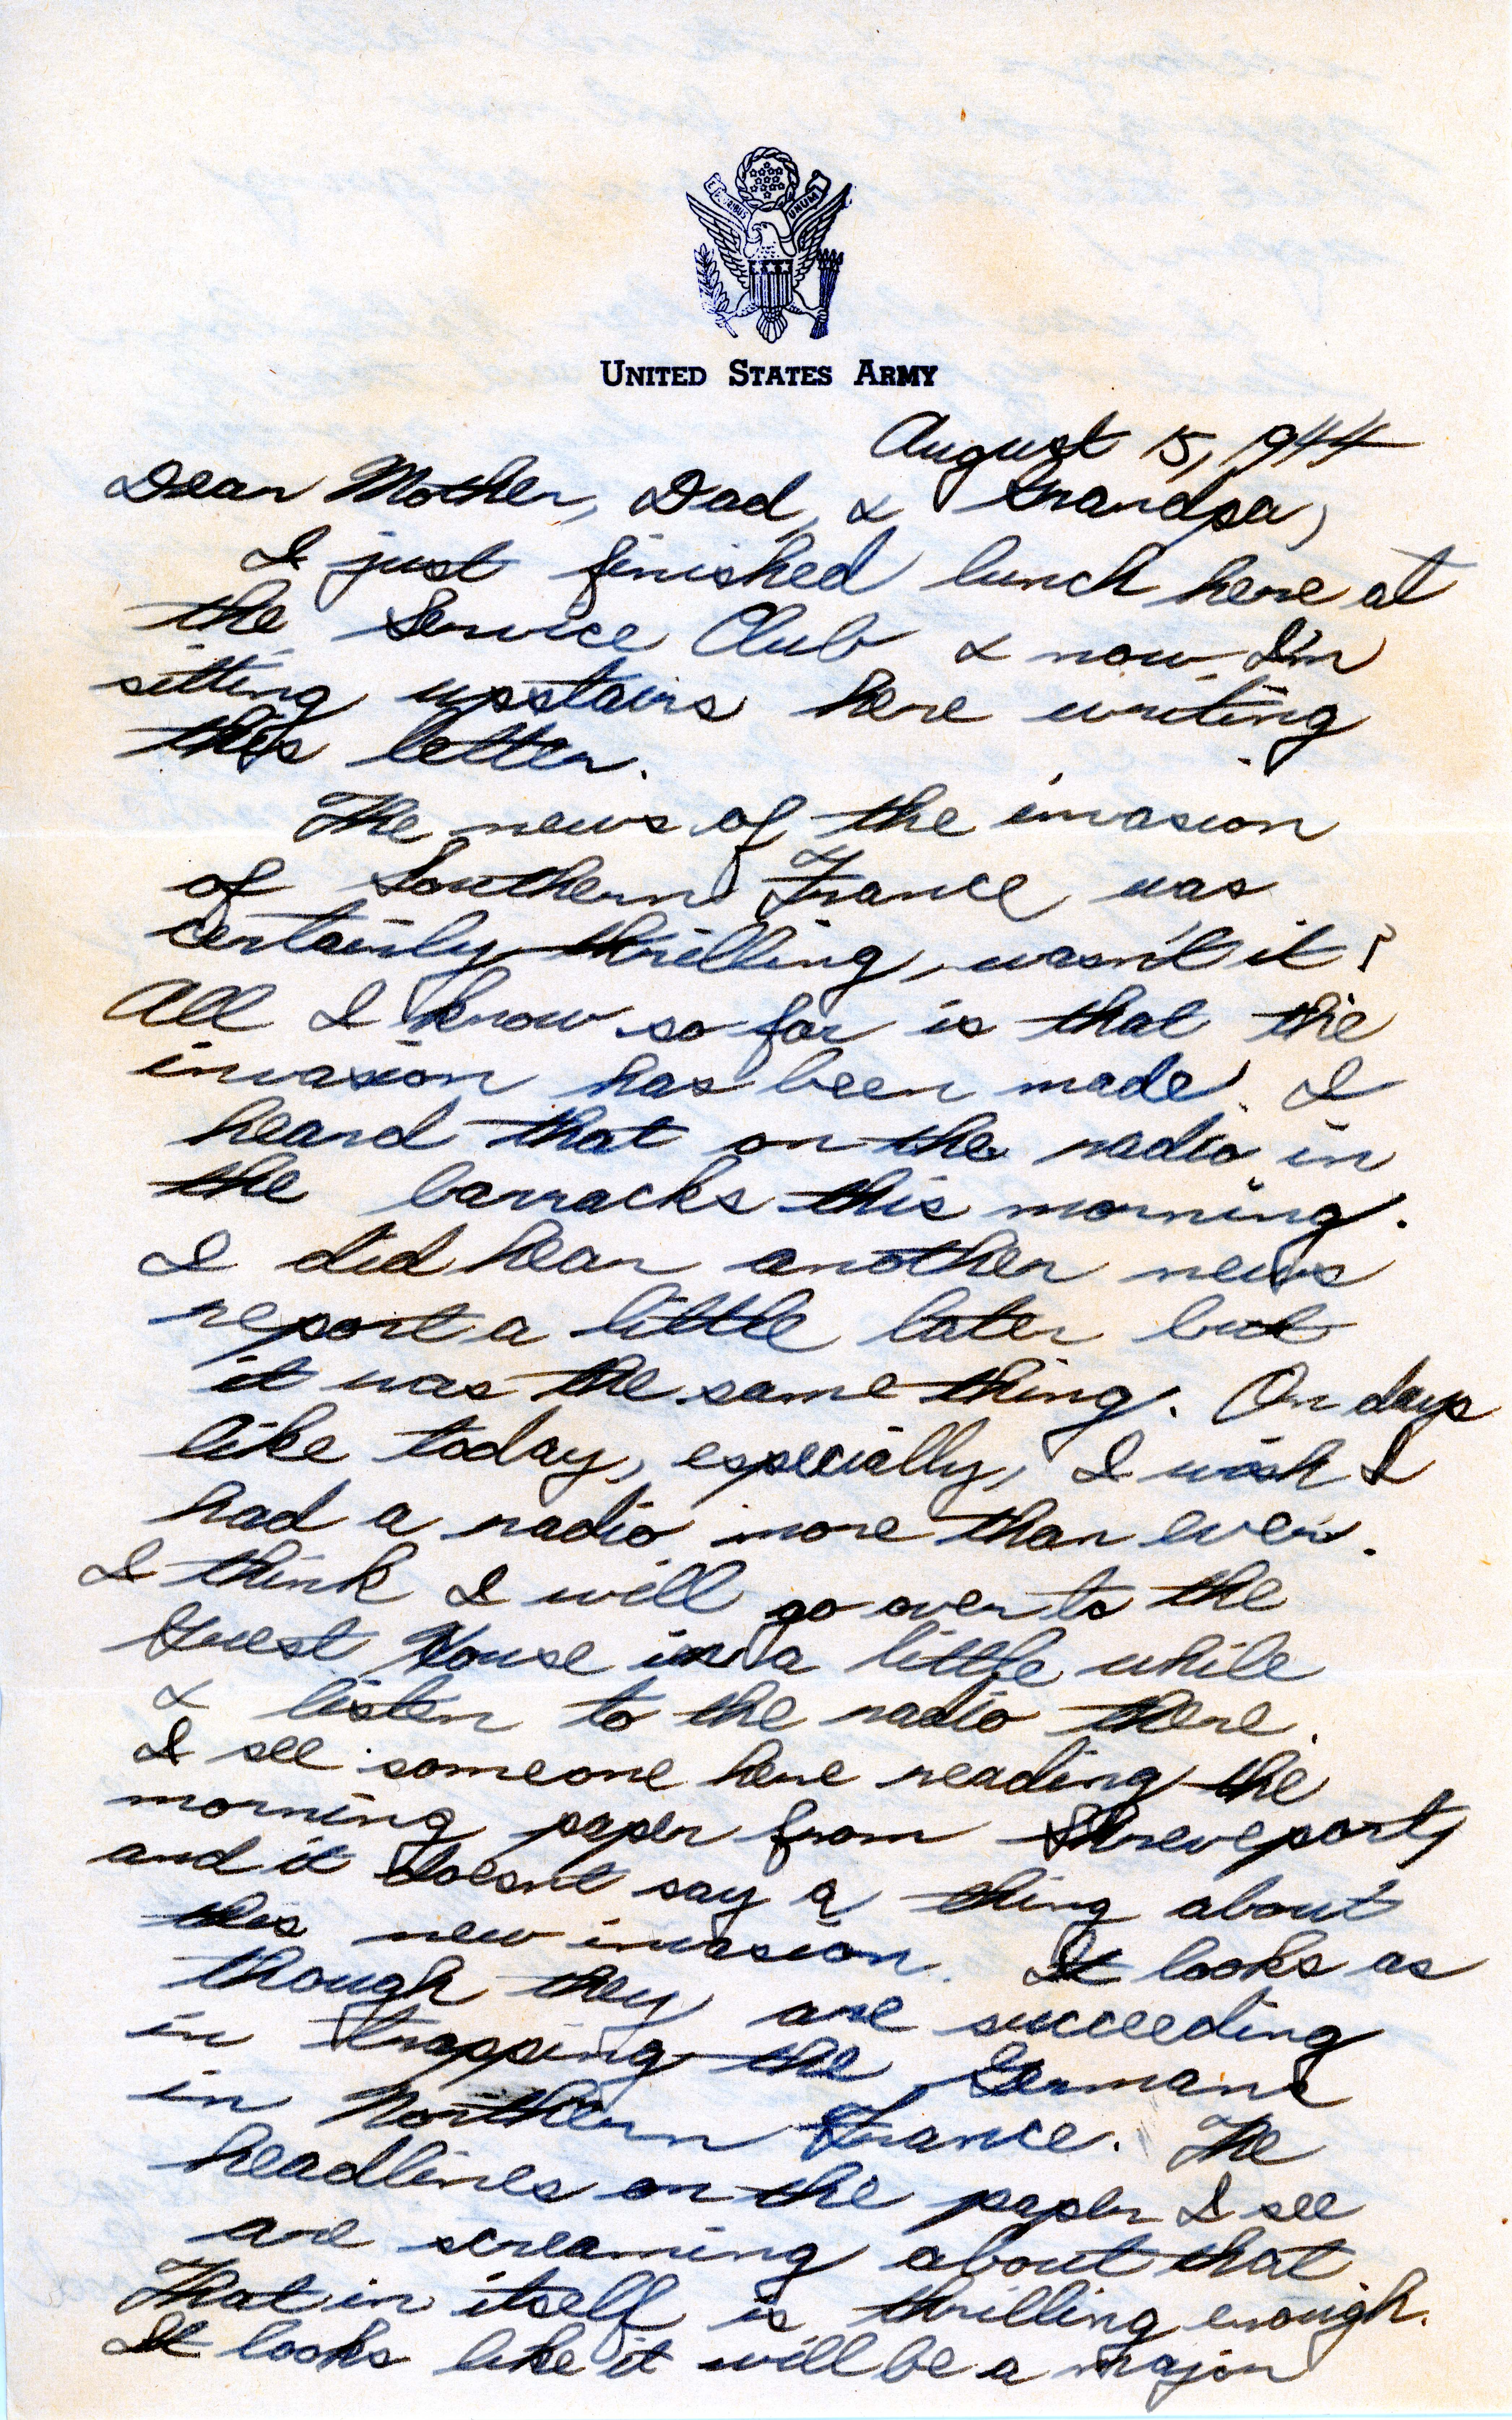 E PLURIBUS UNUM
UNITED STATES ARMY
August 15, 1944
Dear Mother, Dad, & Grandpa,
I just finished lunch here at
the Service Club & now I'm
sitting upstairs here writing
this letter.
The news of the invasion
of Southern France was
certainly thrilling, wasn't it?
All I know so far is that the
invasion has been made. I
heard that on the radio in
the barracks this morning.
I did hear another news
report a little later but
it was the same thing. On days
like today, especially, I wish I
had a radio more than ever.
I think I will go over to the
Guest House in a little while
& listen to the radio there.
I see someone here reading the
morning paper from Shreveport,
and it doesn't say a thing about
this new invasion. It looks as
though they are succeeding
in trapping the Germans
in Northern France. The
headlines on the paper I see
are screaming about that.
That in itself is thrilling enough.
It looks like it will be a major